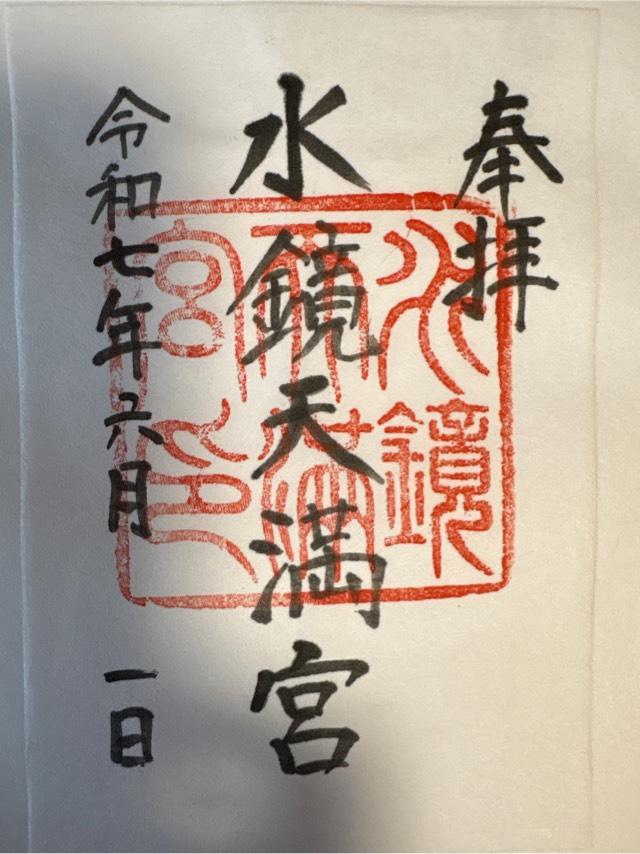 奉拝
水鏡天満宮
令和七年六月 一日
水鏡
天満
宮印